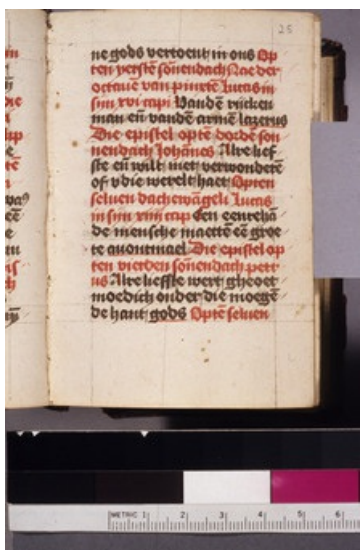 25
ne gods vertoent in ons Op
ten yerstē sōnendach Nae der
octaue van pinxtē Lucas in
sijn xvi capi Vandē rijcken
man eñ vandē armē lazerus
Die epistel optē derdē son
nendach Johānes Alre lief
ste eñ wilt niet verwonderē
of v die werelt haet Opten
seluen dach ewāgeli Lucas
in sijn xiiij cap Een eenrehā
de mensche maectē eē groe
te auontmael Die epistel op
ten vierden sōnendach petr
us Alre liefste wert gheoet
moedich onder die moegē
de hant gods Optē seluen
METRIC 1 2 3 4 5 6